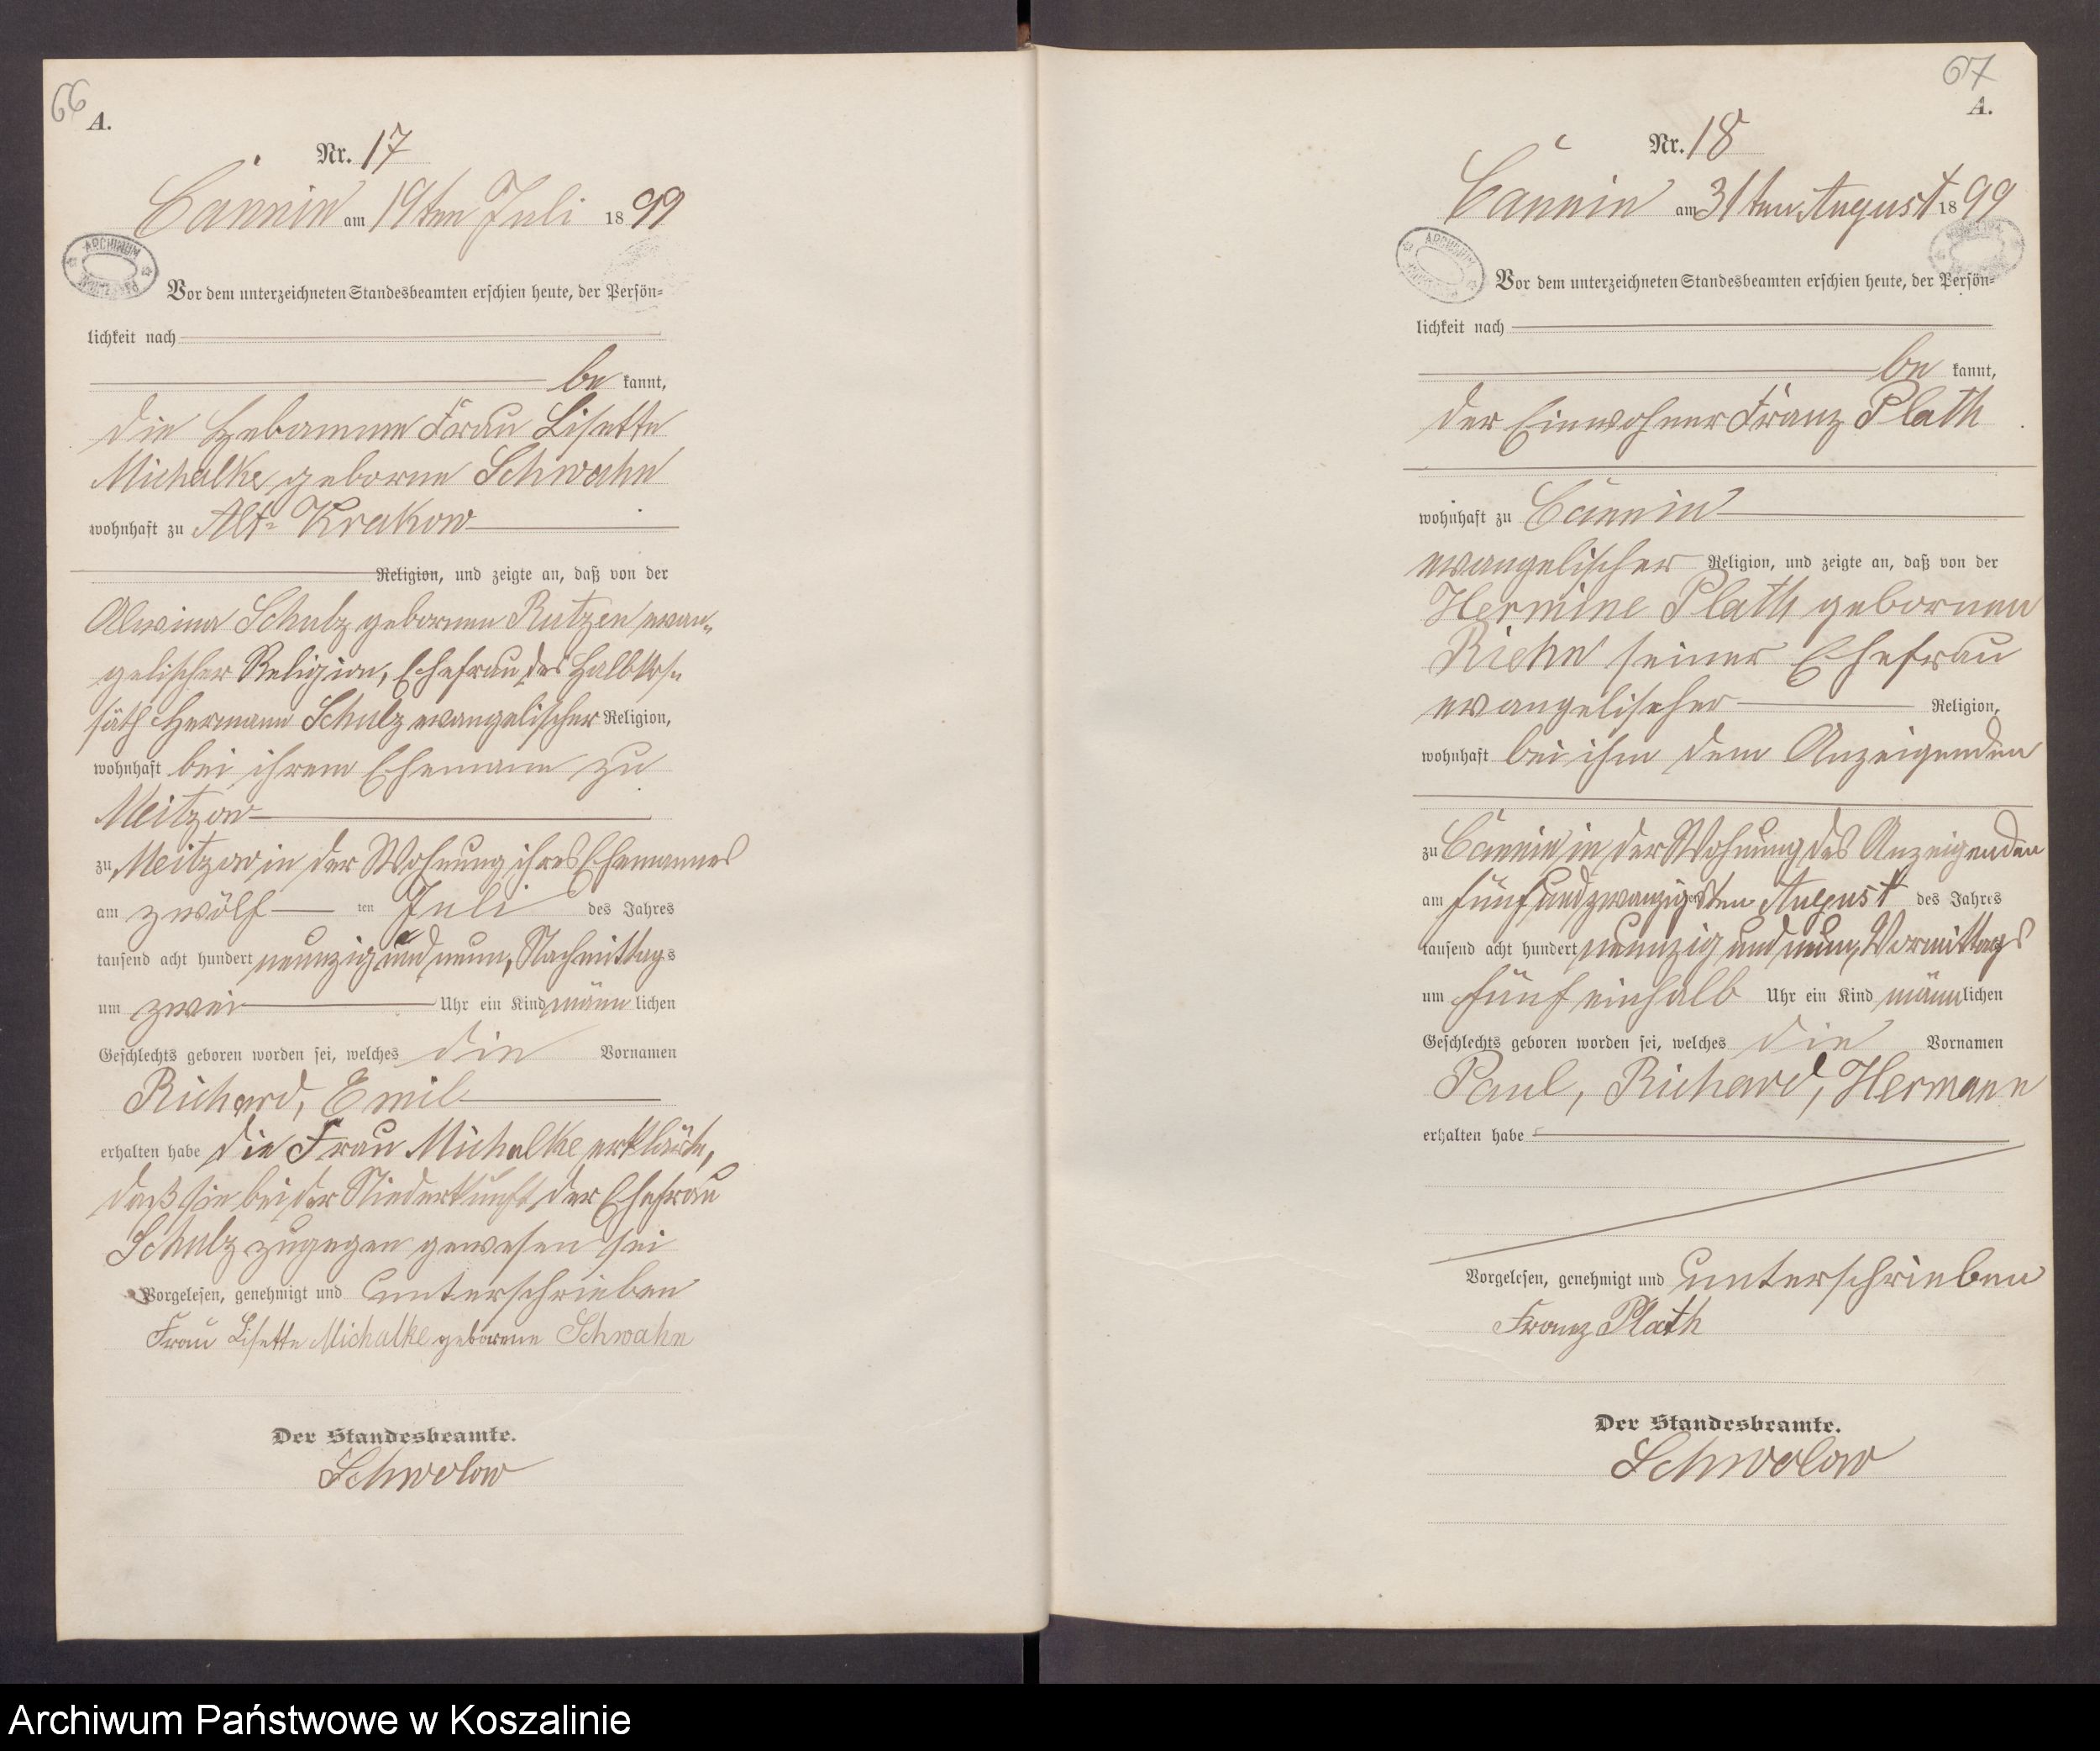 66
A.
Nr. 17
Cännin am 19ten Juli 1899
ARCHIWUM
Vor dem unterzeichneten Standesbeamten erschien heute, der Persön=
lichkeit nach
be kannt,
die Hebamme Frau Lisette
Michalke geborne Schwahn
wohnhaft zu Alt-Krakow
Religion, und zeigte an, daß von der
Alwina Schulz gebornen Rutzen evan=
gelischer Religion, Ehefrau des Halbkos=
säth Hermann Schulz evangelischer Religion,
wohnhaft bei ihrem Ehemann zu
Meitzow
zu Meitzow in der Wohnung ihres Ehemannes
am zwölf ten Juli des Jahres
tausend acht hundert neunzig und neun, Nachmittags
um zwei Uhr ein Kind männ lichen
Geschlechts geboren worden sei, welches die Vornamen
Richard, Emil
erhalten habe die Frau Michalke erklärte,
daß sie bei der Niederkunft der Ehefrau
Schulz zugegen gewesen sei
Vorgelesen, genehmigt und unterschrieben
Frau Lisette Michalke geborene Schwahn
Der Standesbeamte.
Schwolow
67
A.
Nr. 18
Cännin am 31ten August 1899
ARCHIWUM
Vor dem unterzeichneten Standesbeamten erschien heute, der Persön=
lichkeit nach
be kannt,
der Einwohner Franz Plath
wohnhaft zu Cännin
evangelischer Religion, und zeigte an, daß von der
Hermine Plath gebornen
Riehn seiner Ehefrau
evangelischer Religion,
wohnhaft bei ihm dem Anzeigenden
zu Cännin in der Wohnung des Anzeigenden
am fünf und zwanzigsten August des Jahres
tausend acht hundert neunzig und neun, Vormittags
um fünf einhalb Uhr ein Kind männlichen
Geschlechts geboren worden sei, welches die Vornamen
Paul, Richard, Hermann
erhalten habe
Vorgelesen, genehmigt und unterschrieben
Franz Plath
Der Standesbeamte.
Schwolow
Archiwum Państwowe w Koszalinie